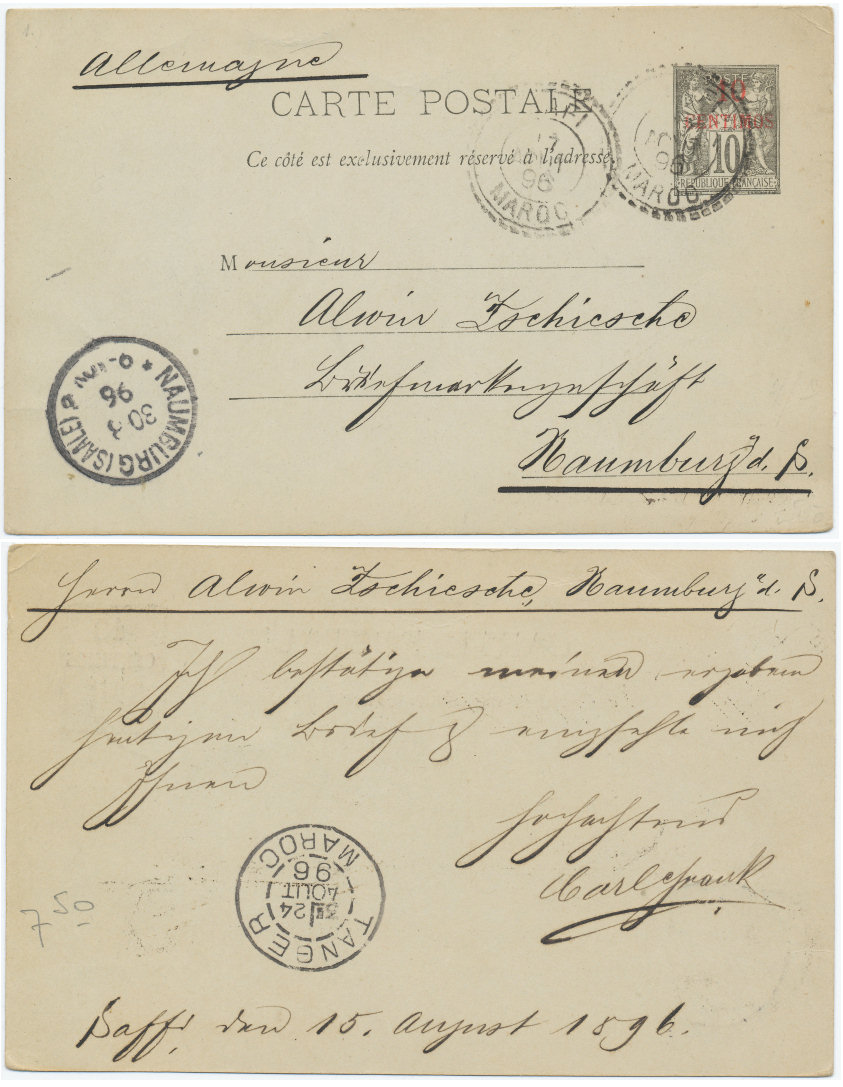 Allemagne
CARTE POSTALE
Ce côté est exclusivement réservé à l'adresse.
POSTE
10
CENTIMOS
10
REPUBLIQUE FRANÇAISE
17
AOUT
96
MAROC
17
96
MAROC
Monsieur
Alwin Zschiesche
Briefmarkengeschäft
Naumburg a. d. S.
NAUMBURG (SAALE)
30 8
96
Herrn Alwin Zschiesche, Naumburg a. d. S.
Ich bestätige meinen ergebenen
heutigen Brief & empfehle mich
Ihnen
hochachtend
Carl Frank
TANGER
3E
24
AOUT
96
MAROC
7 50
Saffi, den 15. August 1896.